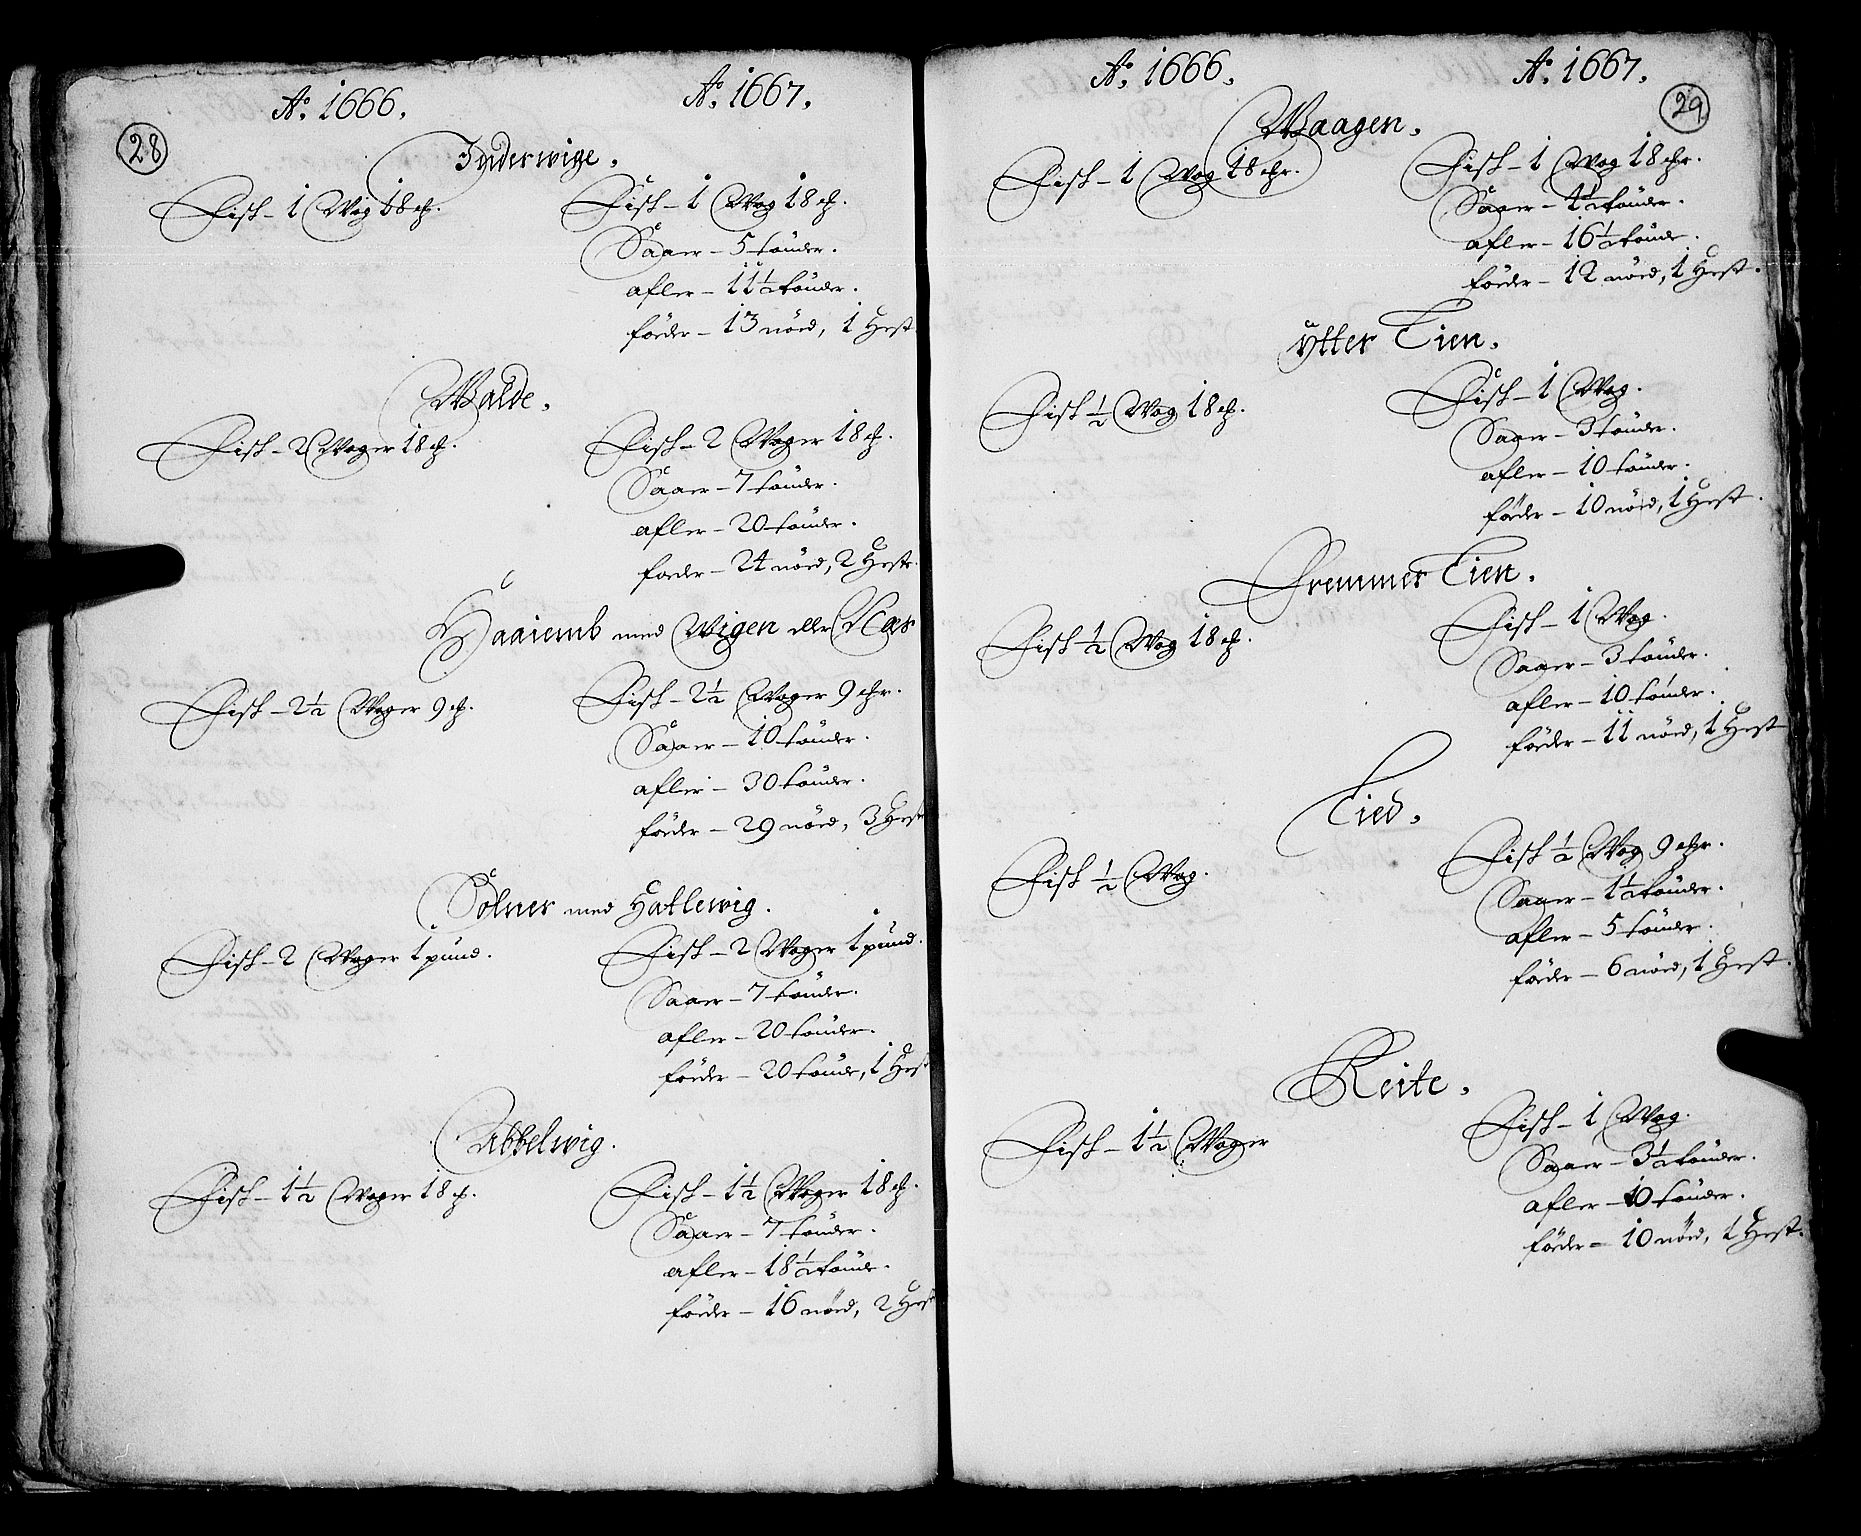 28
Aº. 1666.
Aº. 1667.
Inderwige.
Fisk – 1 Wog 18 ℔.
Fisk – 1 Wog 18 ℔.
Saaer – 5 tönder.
afler – 11½ tönder.
föeder – 13 nöed, 1 Hest
Walde.
Fisk – 2 Woger 18 ℔.
Fisk – 2 Woger 18 ℔.
Saaer – 7 tönder.
afler – 20 tönder.
foeder – 24 nöed, 2 Heste.
Haaiemb med Wigen eller Næs
Fisk – 2½ Woger 9 ℔.
Fisk – 2½ Woger 9 ℔r.
Saaer – 10 tönder.
afler – 30 tönder.
föeder – 29 nöed, 3 Heste
Solnes med Hatlewig.
Fisk – 2 Woger 1 pund.
Fisk – 2 Woger 1 pund.
Saaer – 7 tönder.
afler – 20 tönder.
föeder – 20 tönde, 1 Hest
Ubbelwig.
Fisk – 1½ Woger 18 ℔.
Fisk – 1½ Woger 18 ℔.
Saaer – 7 tönder.
afler – 18½ tönde.
föeder – 16 nöed, 2 Hest
29
Aº. 1666.
Aº. 1667.
Waagen.
Fisk – 1 Wog 18 ℔r.
Fisk – 1 Wog 18 ℔r.
Saaer – 4½ tönder.
afler – 16½ tönde.
föeder – 12 nöed, 1 Hest.
Ytter Tien.
Fisk ½ Wog 18 ℔.
Fisk – 1 Wog.
Saaer – 3 tönder.
afler – 10 tönder.
föeder – 10 nöed, 1 Hest.
Fremmer Tien.
Fisk ½ Wog 18 ℔.
Fisk – 1 Wog.
Saaer – 3 tönder.
afler – 10 tönder.
föeder – 11 nöed, 1 Hest
Eied.
Fisk ½ Wog.
Fisk ½ Wog 9 ℔r.
Saaer – 1½ tönder.
afler – 5 tönder.
föeder – 6 nöed, 1 Hest.
Reite.
Fisk – 1½ Woger
Fisk – 1 Wog.
Saaer – 3½ tönder.
afler – 10 tönder.
föeder – 10 nöed, 1 Hest.